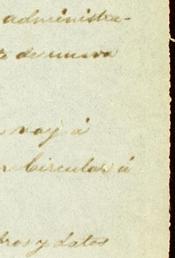 administra-
de nueva
voy á
Circular á
y datos